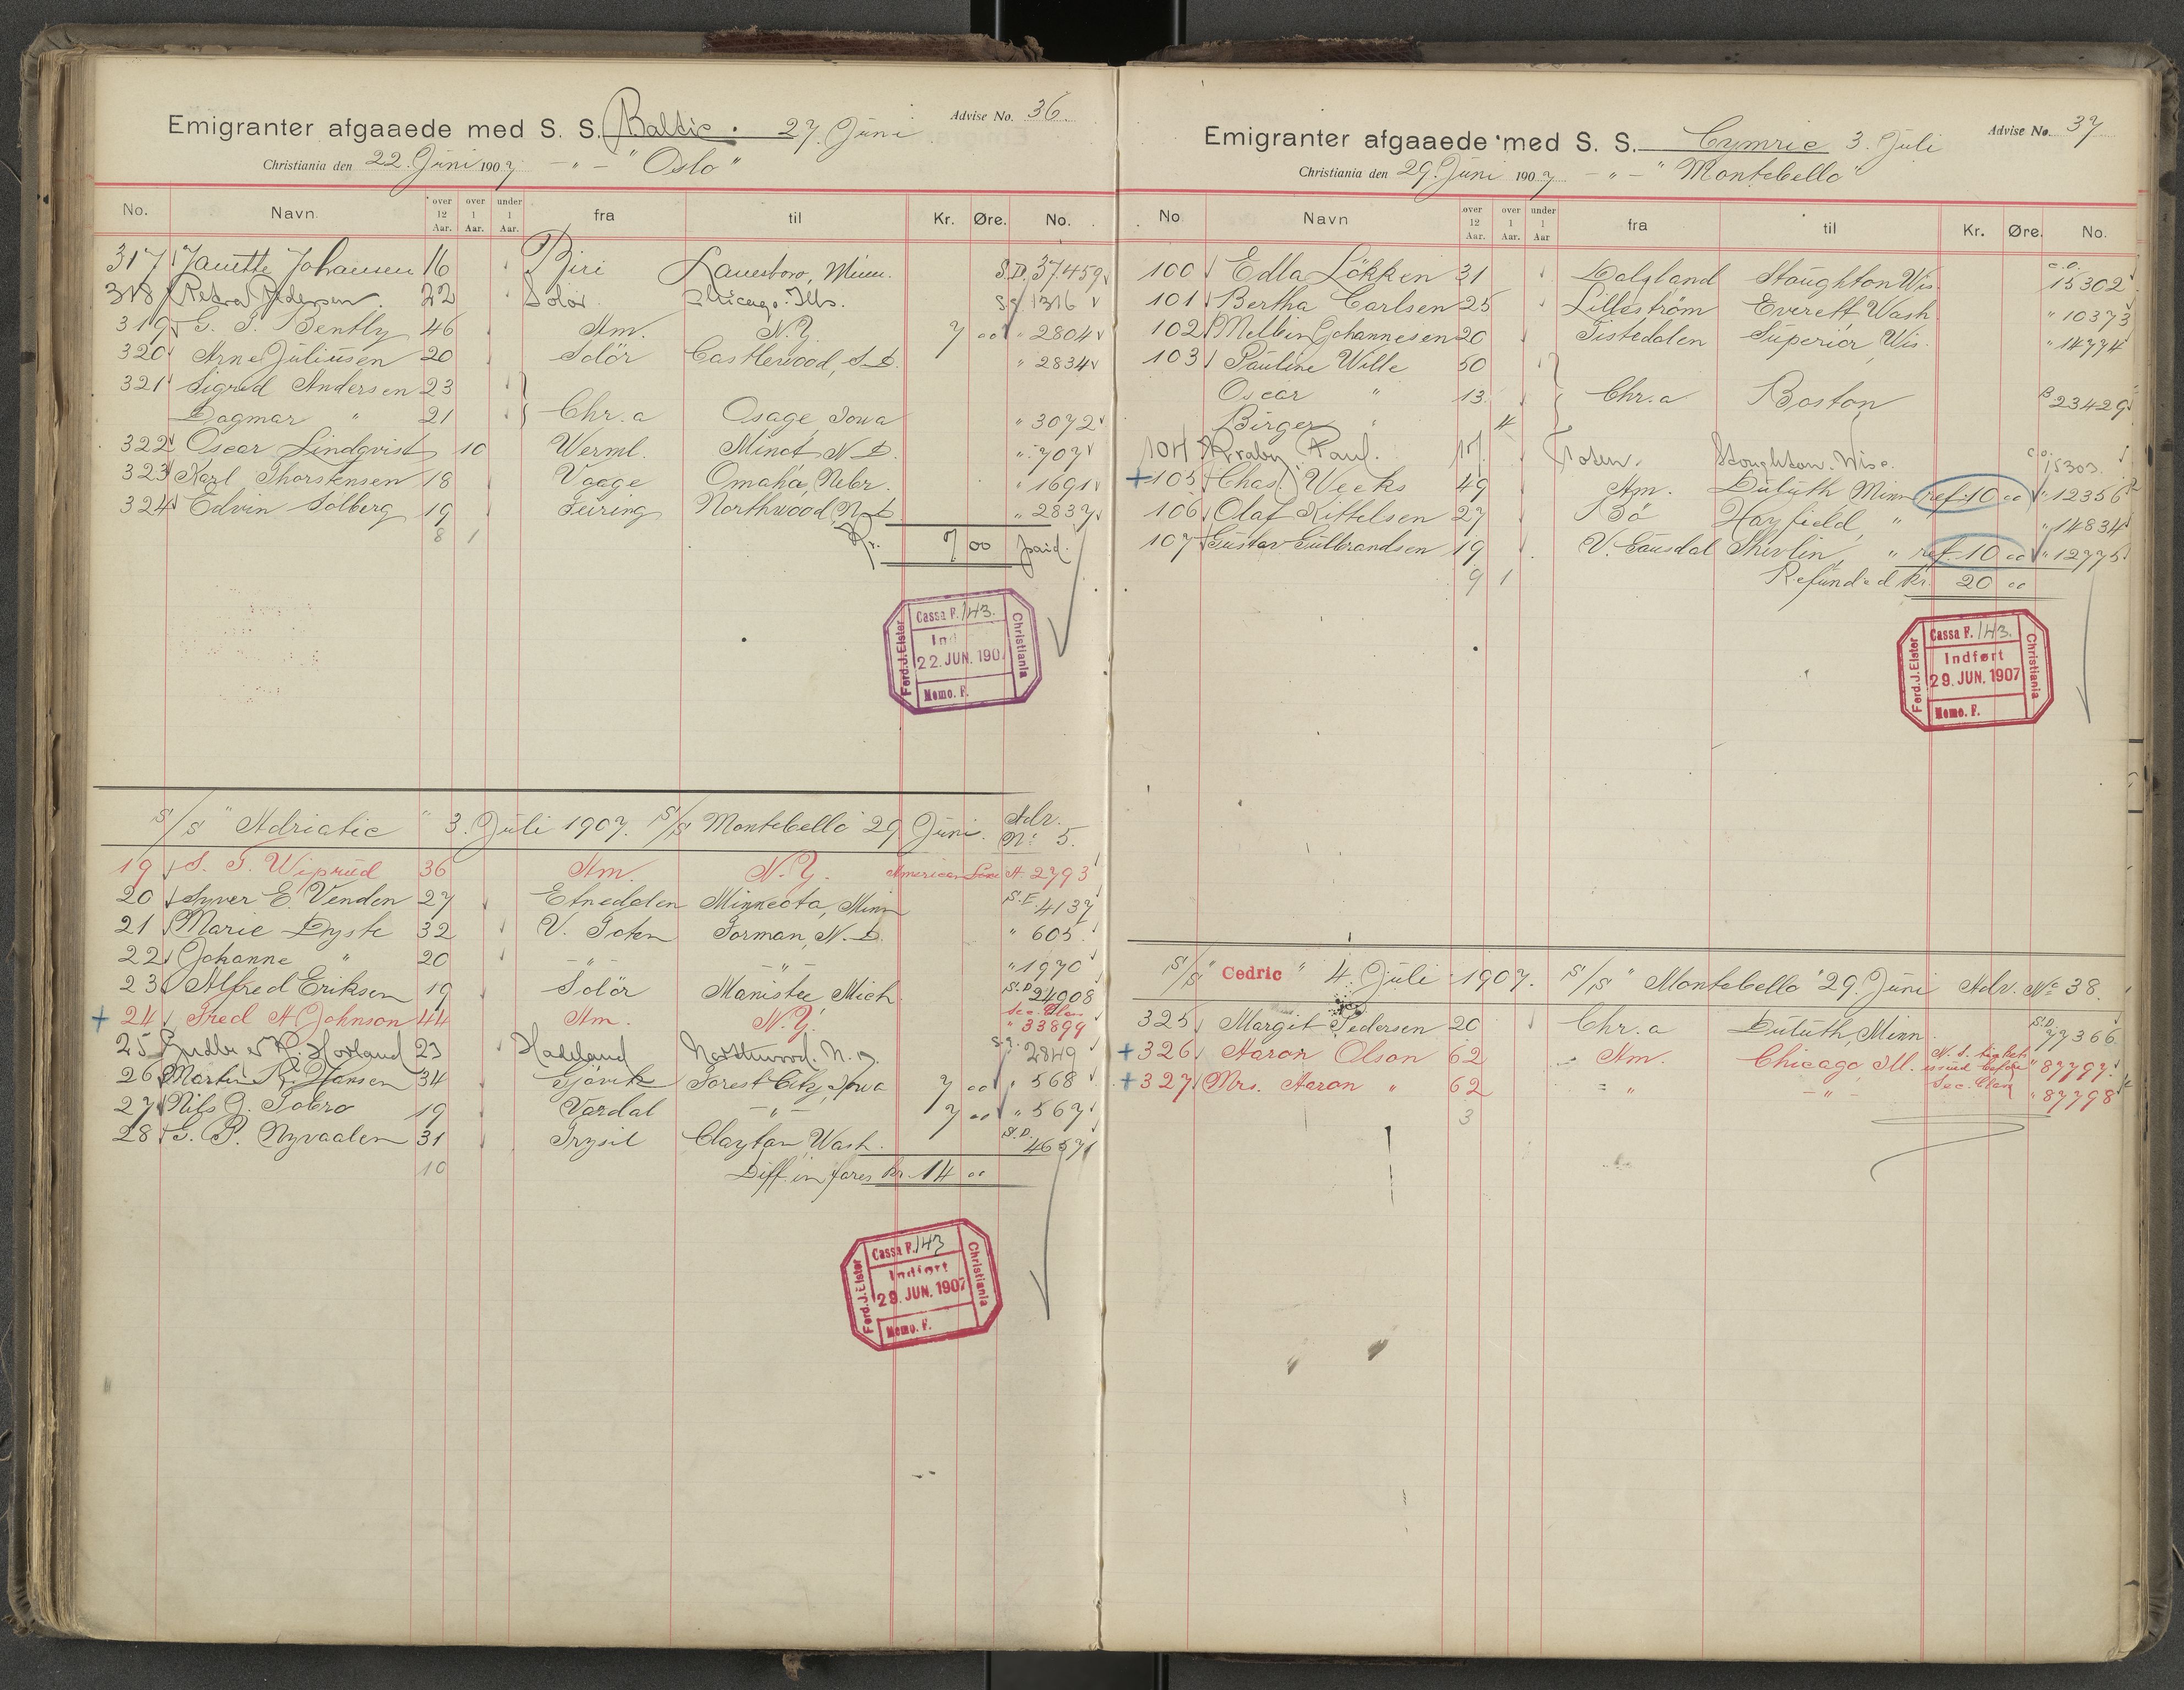 Advise No. 36.
Emigranter afgaaede med S. S. Baltic. 27. Juni
Christiania den 22. Juni 1907 - " - "Oslo"
No. Navn. over 12 Aar. over 1 Aar. under 1 Aar. fra til Kr. Øre. No.
317 Janette Johansen 16 Biri Lanesboro, Minn. S.D. 37459
318 Petra Pedersen. 22 Solör. Chicago. Ills. S.J. 1316
319 G. T. Bently 46 Am. N.Y. 7 00 " 2804
320 Arne Juliusen 20 Solör Castlewood, S.D. " 2834
321 Sigrid Andersen 23
Dagmar " 21 } Chr.a Osage Iowa " 3072
322 Oscar Lindqvist 10 Werml. Minot N.D. " 707
323 Karl Thorstensen 18 Vaage Omaha, Nebr. " 1691
324 Edvin Solberg 19 Feiring Northwood, N.D. " 2837
8 1 Kr. 7 00 paid.
Ferd. J. Elster Cassa F. 143. Christiania
22. JUN. 190
Memo. F.
S/S "Adriatic" 3. Juli 1907. S/S Montebello 29 Juni. Adv. No. 5.
19 S. T. Wiprud 36 Am. N.Y. American Line A. 2793
20 Syver E. Venden 27 Etnedalen Minneota, Minn S.E. 4137
21 Marie Dyste 32 V. Toten Forman, N.D. " 605
22 Johanne " 20 - " - - " - " 1970
23 Alfred Eriksen 19 Solör Manistee Mich. S.D. 24908
+ 24 Fred A Johnson 44 Am. N.Y. Sec. Class " 33899
25 K. Hovland 23 Hadeland Northwood. N.D. S.J. 2849
26 Martin K. Hansen 34 Gjövik Forest City, Iowa 7 00 " 568
27 Nils J. Sobro 19 Vardal - " - 7 00 " 567
28 G. P. Nyvaalen 31 Trysil Clayton, Wash. S.D. 46571
10 Diff. in fares Kr. 14 00
Ferd. J. Elster Cassa F. 143 Christiania
Indført
29. JUN. 1907
Memo. F.
Advise No. 37
Emigranter afgaaede med S. S. Cymric 3. Juli
Christiania den 29. Juni 1907 - " - "Montebello"
No Navn over 12 Aar. over 1 Aar. under 1 Aar fra til Kr. Øre. No.
100 Edla Lökken 31 Dalsland Stoughton Wis. C.O. 15302
101 Bertha Carlsen 25 Lilleström Everett Wash. " 10373
102 Melbin Johannesen 20 Tistedalen Superior, Wis. " 14774
103 Pauline Wille 50
Oscar " 13 } Chr.a Boston B 23429
Birger " 4
104 Kraby, Paul. 17. Toten. Stoughton. Wisc. C.O. 15303.
+ 105 Chas. Weeks 49 Am. Duluth Minn ref. 10 00 " 12356
106 Olaf Kittelsen 27 Bö Hayfield, " " 14834
107 Gustav Gulbrandsen 19 V. Gausdal Shevlin, " ref. 10 00 " 12775
9 1 Refunded Kr. 20 00
Ferd. J. Elster Cassa F. 143. Christiania
Indført
29. JUN. 1907
Memo. F.
S/S "Cedric" 4. Juli 1907. S/S "Montebello" 29. Juni Adv. No. 38.
325 Margit Pedersen 20 Chr.a Duluth, Minn. S.D. 77366
+ 326 Aaron Olson 62 Am. Chicago Ill. N. S. tickets issued before " 87797.
+ 327 Mrs. Aaron " 62 " - " - Sec. Class " 87798
3